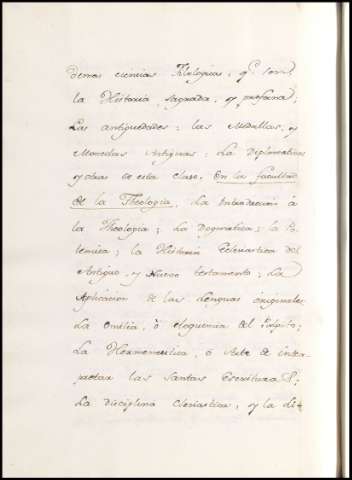 demas ciencias Filologicas; qe. son
la Historia Sagrada, y profana;
Las antiguedades; las Medallas, y
Monedas Antiguas; La Diplomatica
y otras de esta clase. En la facultad
de la Theologia, La Introducion à
la Theologia; La Dogmatica; la Po
lemica; la Historia Eclesiastica del
Antiguo, y Nuevo testamento; La
Aplicacion de las Lenguas originales;
La Omilia, ò eloquencia del Pulpito;
La Hermeneutica, ò Arte de inter-
pretar las Santas Escrituras;
La Disciplina Clesiastica, y la Li-